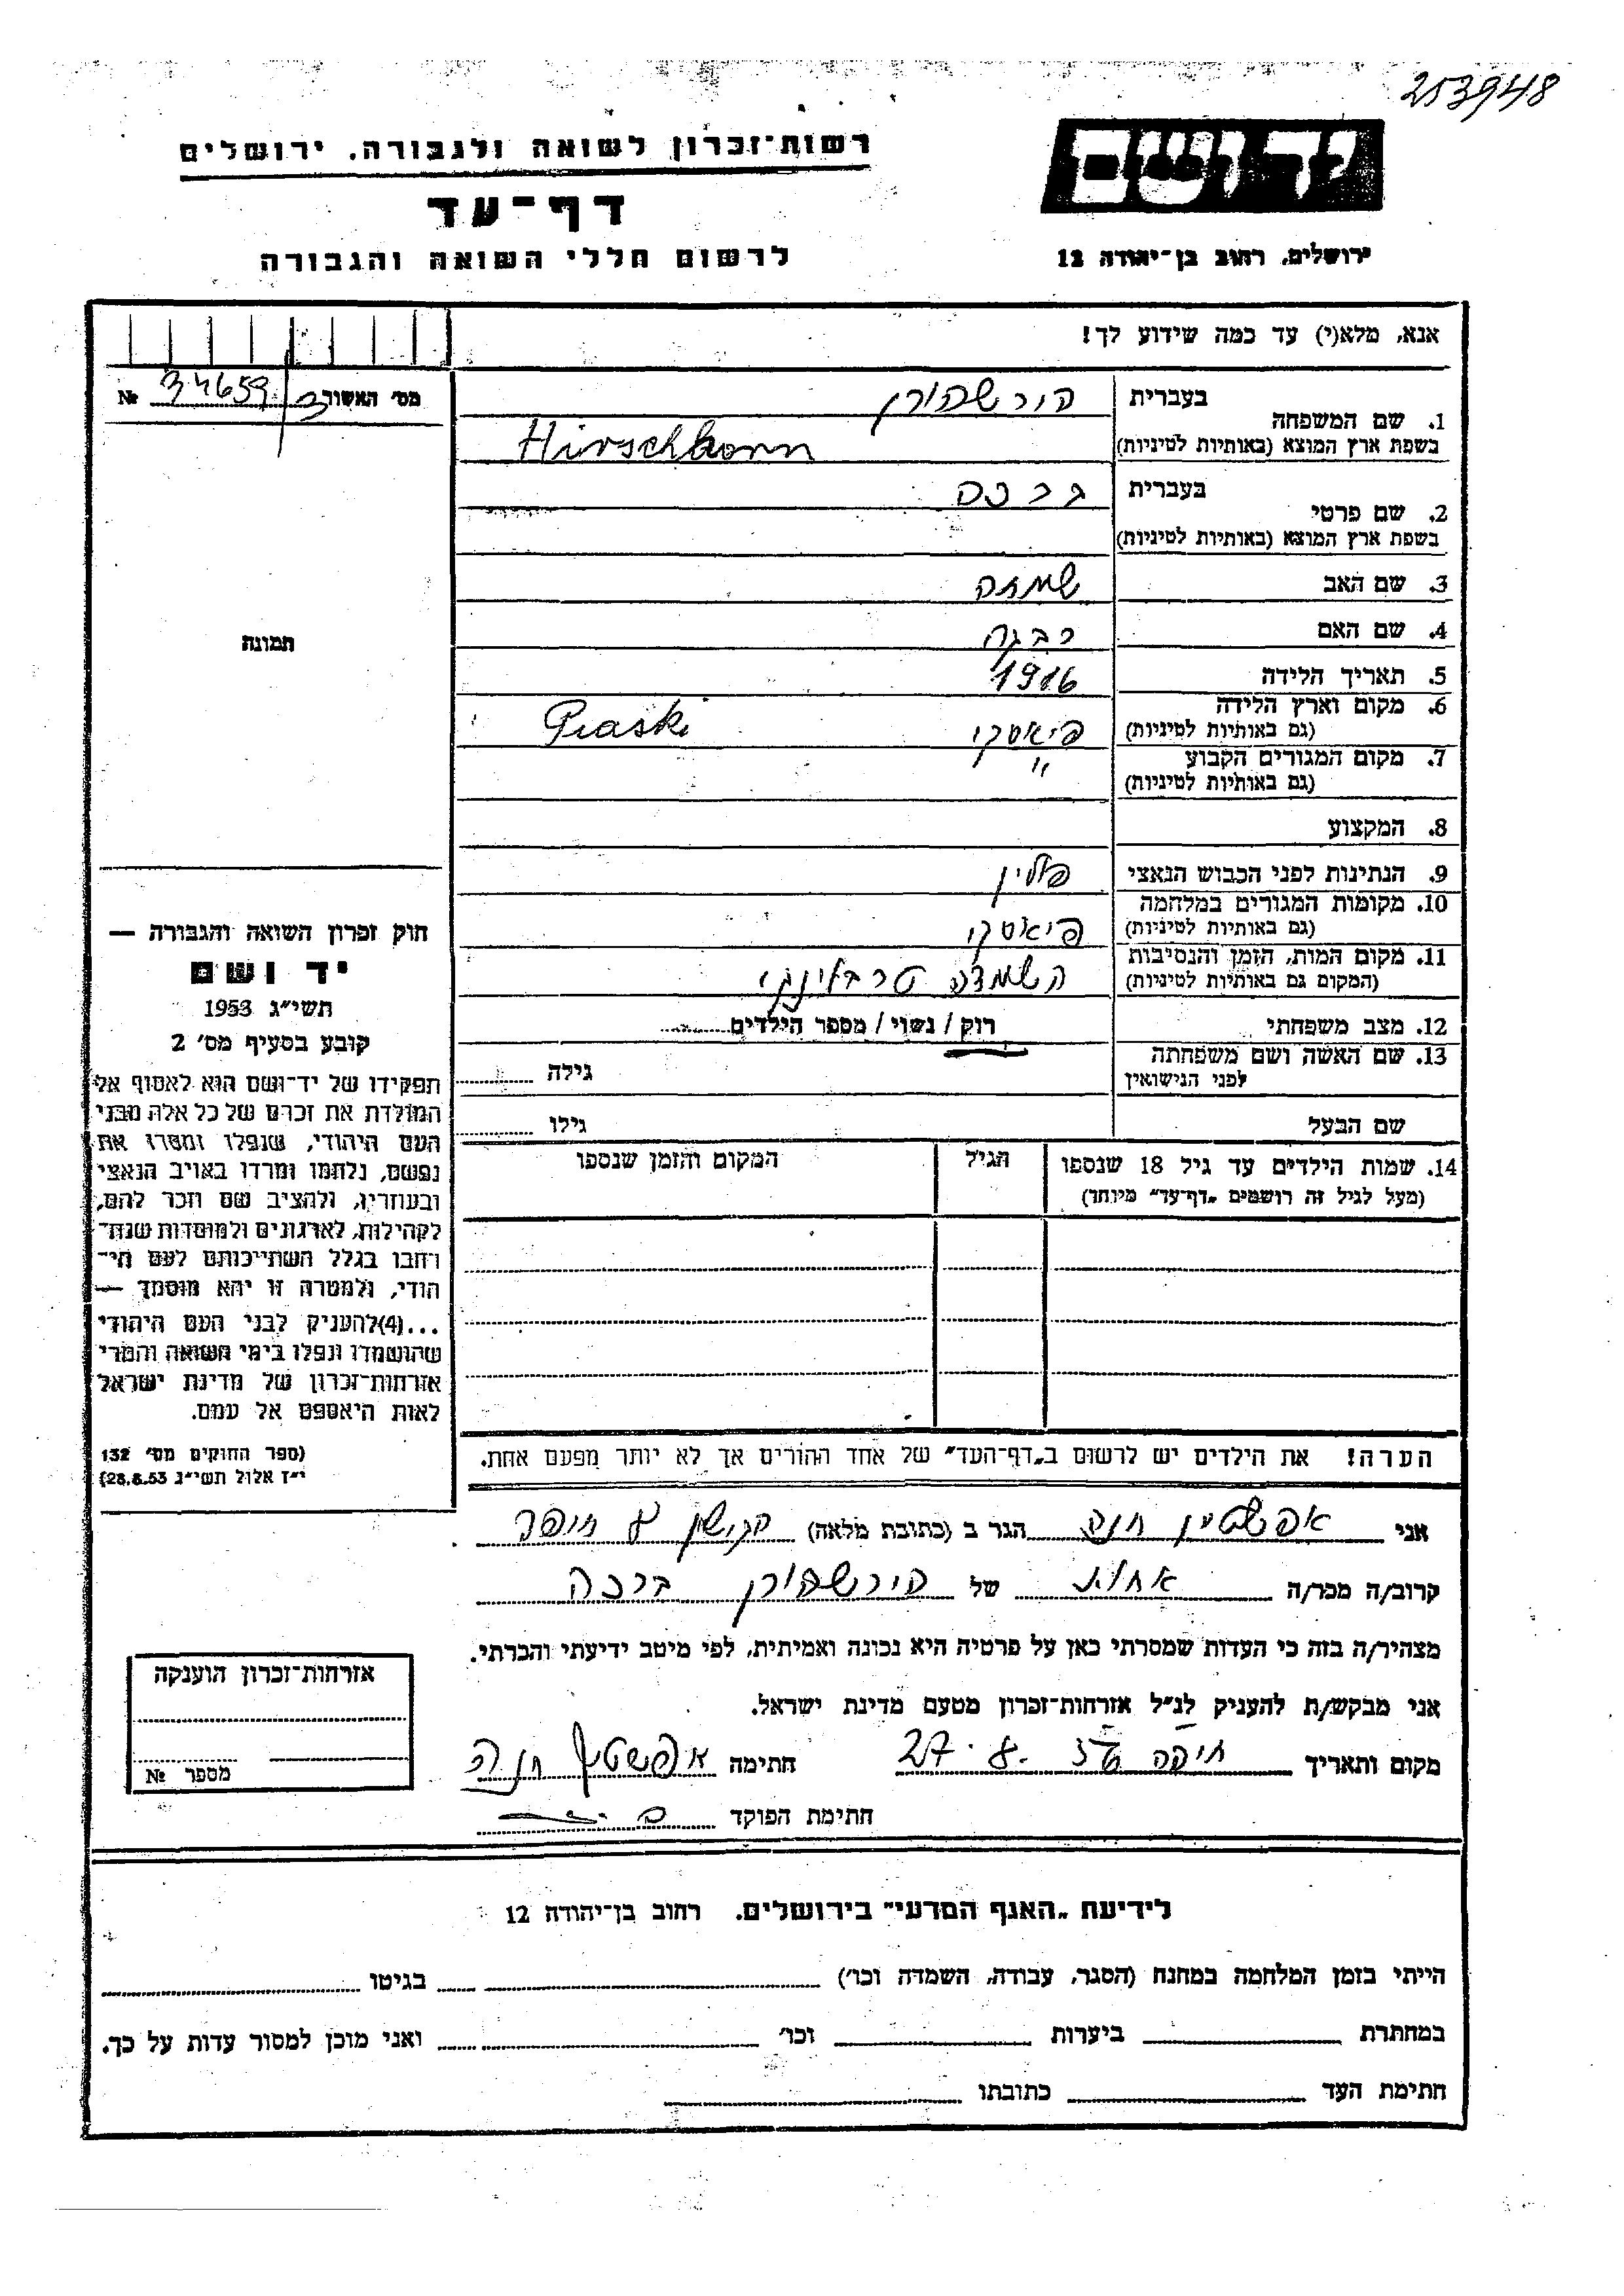 253948
רשות־זכרון לשואה ולגבורה, ירושלים
דף־עד
לרשום חללי השואה והגבורה
יד ושם
ירושלים, רחוב בן־יהודה 12
אנא, מלא(י) עד כמה שידוע לך!
מס׳ האשור 34659/3 №
תמונה
1. שם המשפחה בעברית הירשהורן
בשפת ארץ המוצא (באותיות לטיניות) Hirschhorn
2. שם פרטי בעברית ברכה
בשפת ארץ המוצא (באותיות לטיניות)
3. שם האב שמחה
4. שם האם רבקה
5. תאריך הלידה 1916
6. מקום וארץ הלידה (גם באותיות לטיניות) פיאסקי Piaski
7. מקום המגורים הקבוע (גם באותיות לטיניות) "
8. המקצוע
9. הנתינות לפני הכבוש הנאצי פולין
10. מקומות המגורים במלחמה (גם באותיות לטיניות) פיאסקי
11. מקום המות, הזמן והנסיבות (המקום גם באותיות לטיניות) השמדה
12. מצב משפחתי רוק / נשוי / מספר הילדים
13. שם האשה ושם משפחתה לפני הנישואין גילה
שם הבעל גילו
14. שמות הילדים עד גיל 18 שנספו הגיל המקום והזמן שנספו
(מעל לגיל זה רושמים „דף־עד" מיוחד)
הערה! את הילדים יש לרשום ב„דף־העד" של אחד ההורים אך לא יותר מפעם אחת.
חוק זכרון השואה והגבורה —
יד ושם
תשי״ג 1953
קובע בסעיף מס׳ 2
תפקידו של יד־ושם הוא לאסוף אל
המולדת את זכרם של כל אלה מבני
העם היהודי, שנפלו ומסרו את
נפשם, נלחמו ומרדו באויב הנאצי
ובעוזריו, ולהציב שם וזכר להם,
לקהילות, לארגונים ולמוסדות שנח־
רבו בגלל השתייכותם לעם הי־
הודי, ולמטרה זו יהא מוסמך —
...(4)להעניק לבני העם היהודי
שהושמדו ונפלו בימי השואה והמרי
אזרחות־זכרון של מדינת ישראל
לאות היאספם אל עמם.
(ספר החוקים מס׳ 132
י״ז אלול תשי״ג 28.8.53)
אני אפשטין חנה הגר ב (כתובת מלאה) 8
קרוב/ה מכר/ה אחות של הירשהורן ברכה
מצהיר/ה בזה כי העדות שמסרתי כאן על פרטיה היא נכונה ואמיתית, לפי מיטב ידיעתי והכרתי.
אני מבקש/ת להעניק לנ״ל אזרחות־זכרון מטעם מדינת ישראל.
מקום ותאריך חיפה 27.8 חתימה אפשטין חנה
חתימת הפוקד
אזרחות־זכרון הוענקה
מספר №
לידיעת „האגף המדעי" בירושלים, רחוב בן־יהודה 12
הייתי בזמן המלחמה במחנה (הסגר, עבודה, השמדה וכו׳) בגיטו
במחתרת ביערות וכו׳ ואני מוכן למסור עדות על כך.
חתימת העד כתובתו